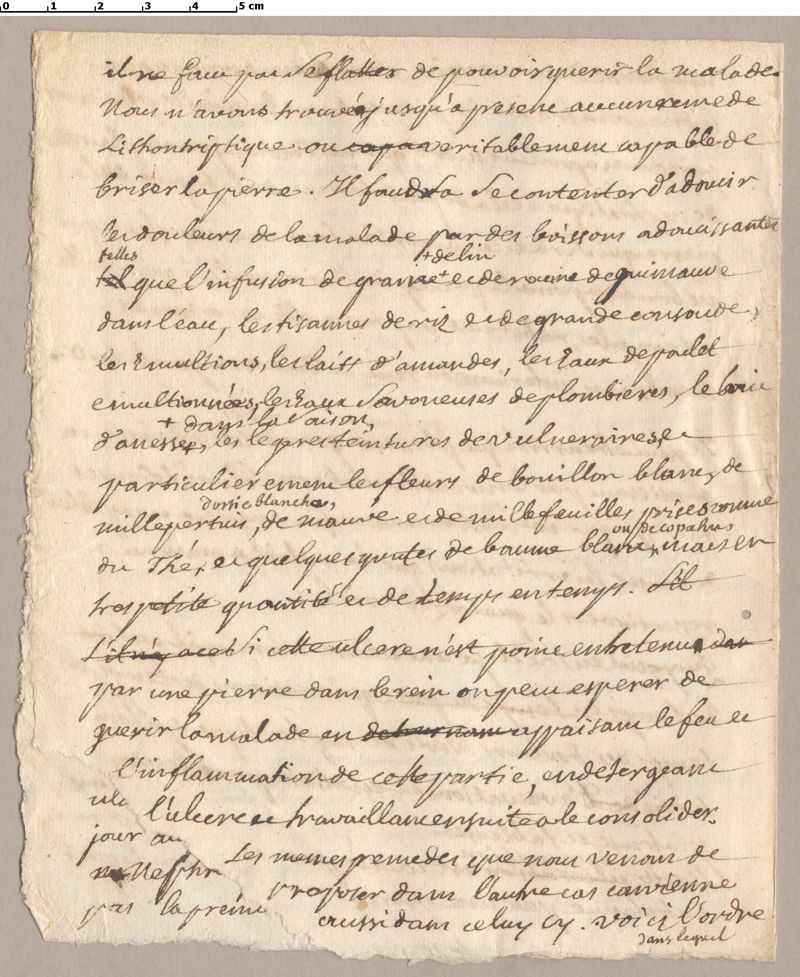 0 1 2 3 4 5 cm
il ne faut pas se flatter de pouvoir guerir la malade.
Nous n'avons trouvé jusqu'a present aucun remede
Lithontriptique ou capa veritablement capable de
briser la pierre. Il faudra se contenter d'adoucir
les douleurs de la malade par des boissons adoucissantes
telles + de lin
tel que l'infusion de graine + et de racine de guimauve
dans l'eau, les tisannes de riz et de grande consoude,
les Emultions, les laits d'amandes, les Eaux de poulet
emultionnées, les Eaux savoneuses de plombieres, le lait
+ dans la saison,
d'anesse +, les legeres teintures de vulneraires, et
particulierement les fleurs de bouillon blanc, de
d'ortie blanche,
millepertuis, de mauve et de millefeuilles prises comme
ou de copahu,
du Thé, et quelques goutes de baume blanc, mais en
tres petite quantité et de temps en temps. S'il
S'il n'y a ce Si cette ulcere n'est point entretenu dan
par une pierre dans le rein on peut esperer de
guerir la malade en detournant appaisant le feu et
l'inflammation de cette partie, en detergeant
l'ulcere et travaillant ensuite a le consolider.
jour au
Les memes remedes que nous venons de
Nephr
proposer dans l'autre cas convienne
pas la premi
aussi dans celuy cy. voici l'ordre
dans lequel